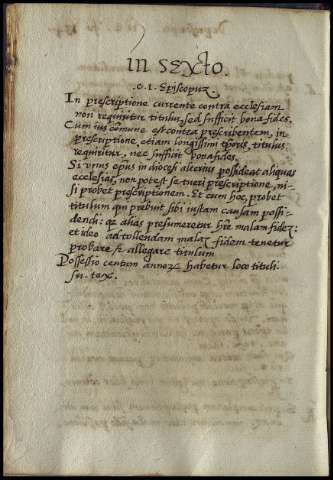 in Sexto.
.c. 1. Episcopuz
In prescriptione currente contra ecclesiam
non requiritur titulus, sed sufficit bona fides.
Cum ius cõmune est contra prescribentem, in
prescriptione, etiam longissimi tp̃oris, titulus
requiritur, nec sufficit bona fides.
Si unus ep̃us in diocesi alterius possideat aliquas
ecclesias, non potest se tueri prescriptione, ni-
si probet prescriptionem. Et cum hoc, probet
titulum qui prebuit sibi iustam causam possi-
dendi: qz alias presumeretur h̃re malam fidez:
et ideo ad tollendam malaz fidem tenetur
probare et allegare titulum
Possessio centum annoꝝ habetur loco tituli.